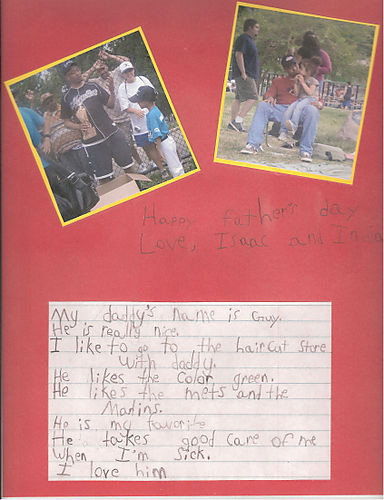 Happy father's day
Love, Isaac and India
My daddy's name is Guy.
He is really nice.
I like to go to the haircut store
with daddy.
He likes the color green.
He likes the mets and the
Marlins.
He is my favorite
He takes good care of me
when I'm sick.
I love him